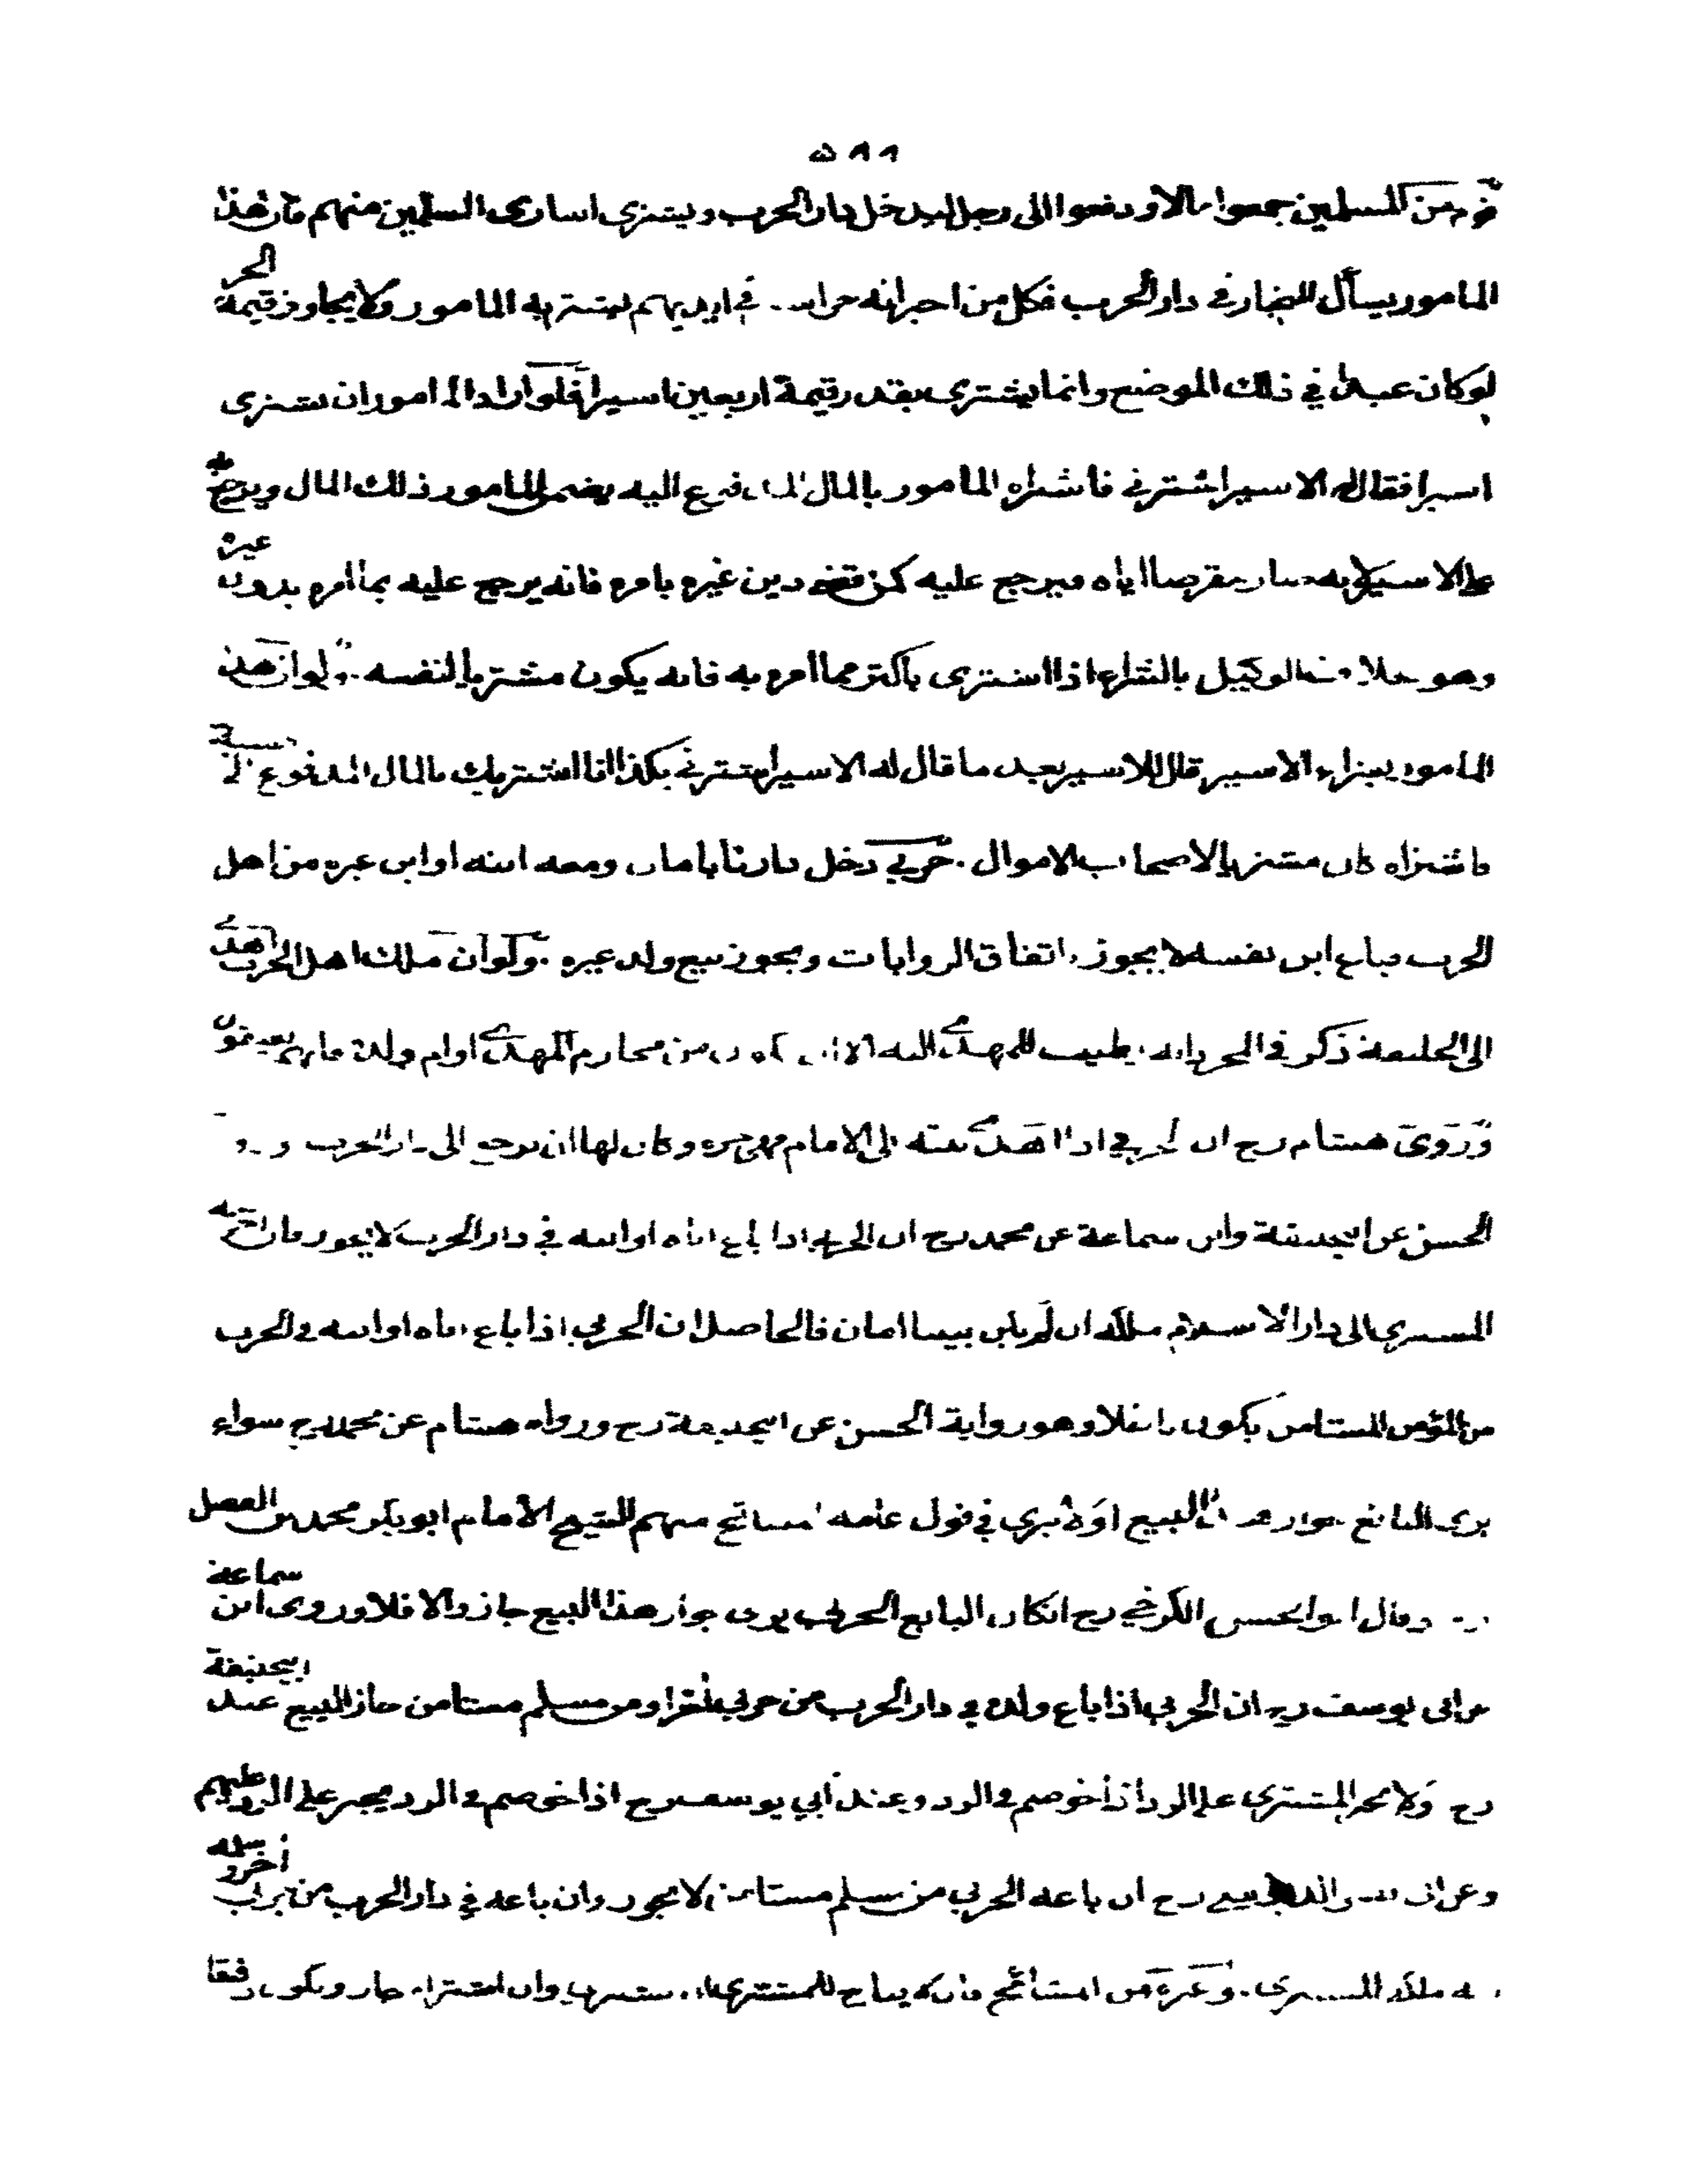 ٥٨٩
قوم من المسلمين جمعوا مالا و دفعوا الى رجل ليدخل دار الحرب ويشترى اسارى المسلمين منهم فان هذا
المامور يسأل التجار في دار الحرب فكل من اخبر انه حر اسير في ايديهم يشتريه المامور ولا يجاوز قيمة الحر
لو كان عبدا في ذلك الموضع وانما يشترى بقدر قيمة اربعين اسيرا فلو اراد المامور ان يشترى
اسيرا فقال له الاسير اشترني فاشتراه المامور بالمال المدفوع اليه يضمن المامور ذلك المال ويرجع به
على الاسير لانه صار مقرضا اياه فيرجع عليه كمن قضى دين غيره بامره فانه يرجع عليه بما امره بدون غيره
وهو بخلاف الوكيل بالشراء اذا اشترى باكثر مما امره به فانه يكون مشتريا لنفسه ولو ان هذا
المامور بشراء الاسير قال للاسير بعد ما قال له الاسير اشترني بكذا انا اشتريك بالمال المدفوع الى حسبة
فاشتراه كان مشتريا لاصحاب الاموال . حربي دخل دارنا بامان ومعه ابنه او ابن غيره من اهل
الحرب فباع ابن نفسه لا يجوز باتفاق الروايات ويجوز بيع ولد غيره . ولو ان ملك اهل الحرب اهدى
الى الخليفة ذكر في المجرد انه يطيب للمهدى اليه الا ان يكون من محارم المهدى او ام ولده فانهم يعتقون
وروى هشام رح ان الحربي اذا اهدى بنته الى الامام فهي حرة وكان لها ان ترجع الى دار الحرب و
الحسن عن ابيحنيفة وابن سماعة عن محمد رح ان الحربي اذا باع اباه او ابنه في دار الحرب لا يجوز فان اخرجه
المشترى الى دار الاسلام ملكه ان لم يكن بينهما امان فالحاصل ان الحربي اذا باع اباه او ابنه في الحرب
من المؤمن المستامن يكون باطلا وهو رواية الحسن عن ابيحنيفة رح ورواه هشام عن محمد رح سواء
يرى البائع جواز هذا البيع او لا يرى في قول عامة المشائخ منهم الشيخ الامام ابو بكر محمد بن الفضل
رح وقال ابو الحسن الكرخي رح ان كان البايع الحربي يرى جواز هذا البيع جاز والا فلا وروى ابن سماعة
عن ابى يوسف رح ان الحربي اذا باع ولده في دار الحرب من حربي مثله او من مسلم مستامن جاز البيع عند ابيحنيفة
رح ولا يجبر المشتري على الرد اذا خوصم في الرد وعند أبي يوسف رح اذا خوصم في الرد يجبر على الرد عليهم
وعن رح ان باعه الحربي من مسلم مستامن لا يجوز وان باعه في دار الحرب من حربي آخر
ملكه المشترى . وغيره من المشائخ للمشترى وان اشتراه جاز ويكون رقيقا